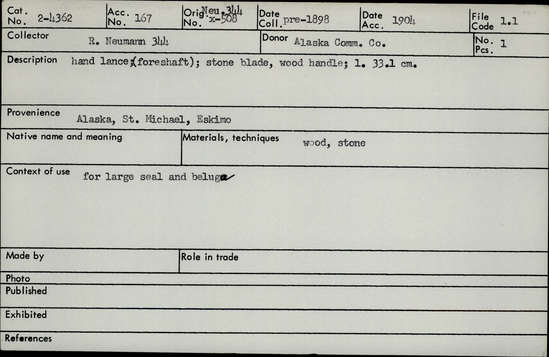 Cat. No. 2-4362 Acc. No. 167 Orig. No. Neu 344 x-508 Date Coll. pre-1898 Date Acc. 1904 File Code 1.1
Collector R. Neumann 344 Donor Alaska Comm. Co. No. Pcs. 1
Description hand lance;(foreshaft); stone blade, wood handle; l. 33.1 cm.
Provenience Alaska, St. Michael, Eskimo
Native name and meaning Materials, techniques wood, stone
Context of use for large seal and beluga
Made by Role in trade
Photo
Published
Exhibited
References